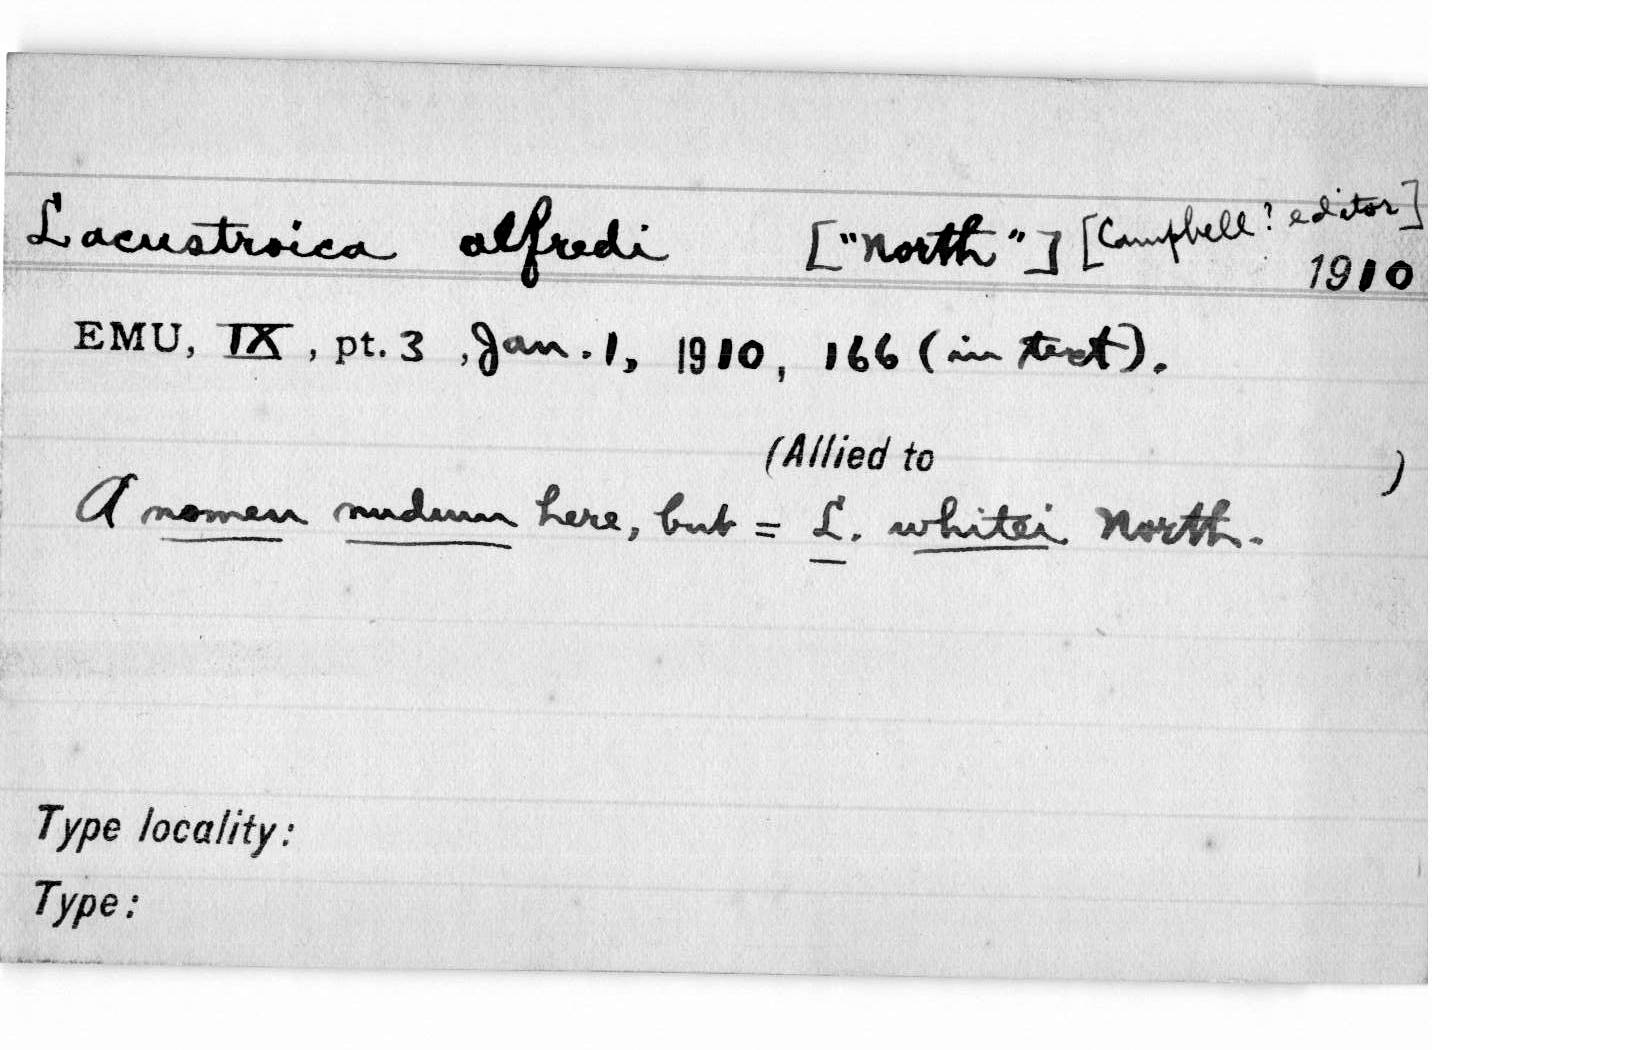 Lacustroica alfredi ["North"] [Campbell? editor]
1910
EMU, IX, pt. 3, Jan. 1, 1910, 166 (in text).
(Allied to )
A nomen nudum here, but = L. whitei North.
Type locality:
Type: